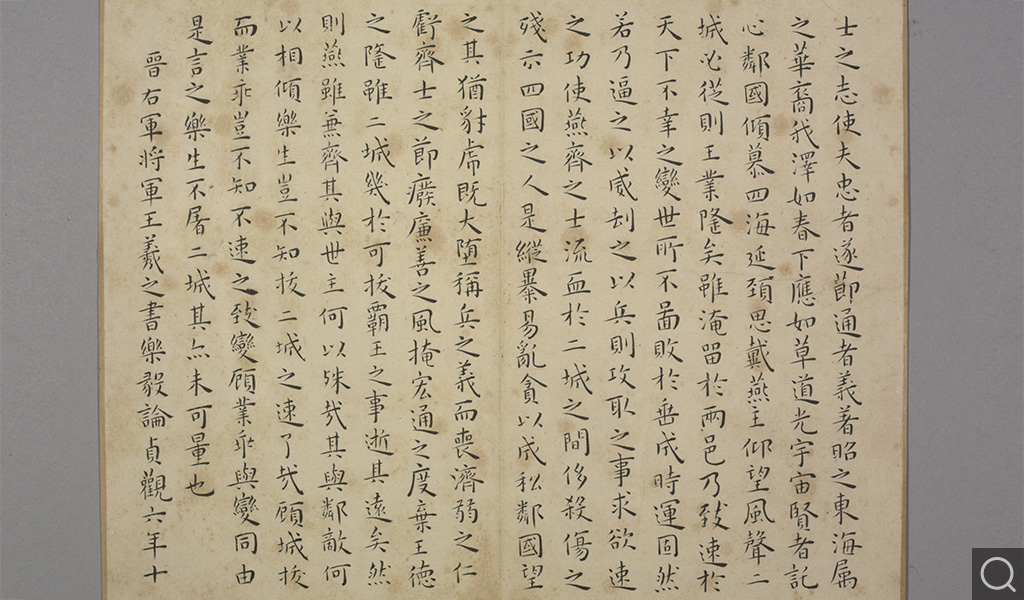 士之志使夫忠者遂節通者義著昭之東海属
之華裔我澤如春下應如草道光宇宙賢者託
心鄰國傾慕四海延頸思戴燕主仰望風聲二
城必從則王業隆矣雖淹留於兩邑乃致速於
天下不幸之變世所不啚敗於垂成時運固然
若乃逼之以威刧之以兵則攻取之事求欲速
之功使燕齊之士流血於二城之間侈殺傷之
殘示四國之人是縱暴易亂貪以成私鄰國望
之其猶豺虎既大墮稱兵之義而喪濟弱之仁
虧齊士之節癈廉善之風掩宏通之度棄王德
之隆雖二城幾於可拔霸王之事逝其遠矣然
則燕雖兼齊其與世主何以殊哉其與鄰敵何
以相傾樂生豈不知拔二城之速了哉顧城拔
而業乖豈不知不速之致變顧業乖與變同由
是言之樂生不屠二城其亦未可量也
晉右軍将軍王羲之書樂毅論貞觀六年十